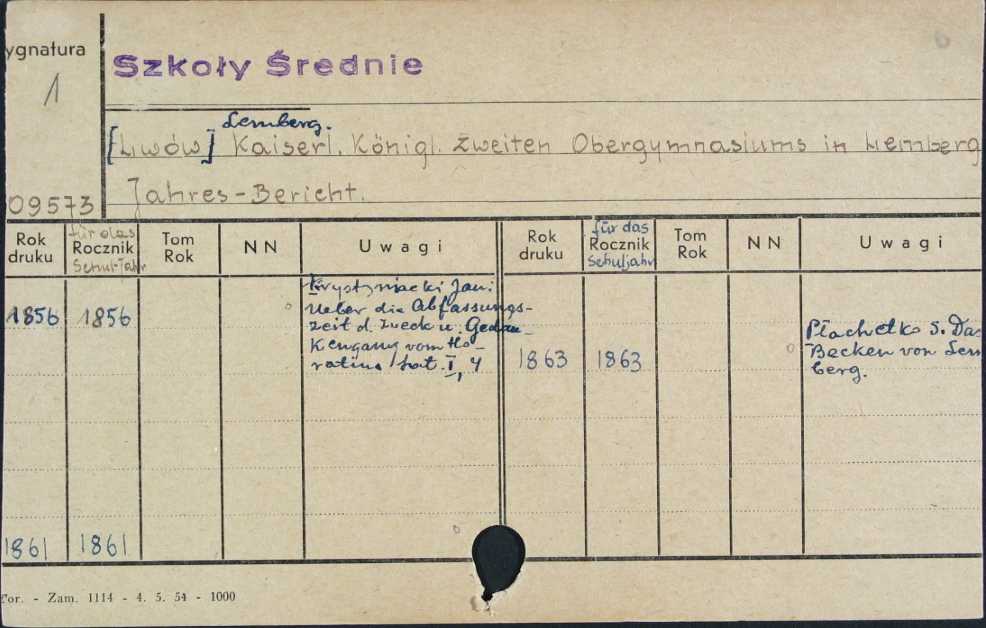 ygnatura
Szkoły Średnie
1
Lemberg.
[Lwów] Kaiserl. Königl. Zweiten Obergymnasiums in Lemberg
09573
Jahres-Bericht.
Rok druku
für das Rocznik Schuljahr
Tom Rok
NN
Uwagi
Rok druku
für das Rocznik Schuljahr
Tom Rok
NN
Uwagi
1856 1856
Krystyniacki Jan:
Ueber die Abfassungs-
zeit d. Zweck u. Gedan-
kengang vom Ho-
ratius sat. I, 4
1863 1863
Płachetko S. Das
Becken von Lem
berg.
1861 1861
for. - Zam. 1114 - 4. 5. 54 - 1000